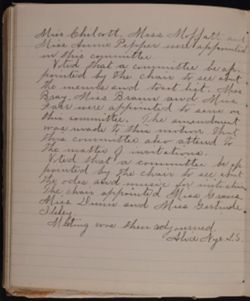 Miss Chilcott, Miss Moffatt and
Miss Annie Pepper were appointed
on this committee.
Voted that a committee be ap-
pointed by the chair to see about
the menus and toast list. Miss
Bray, Miss Braun and Miss
were appointed to serve on
this committee. The amendment
was made to this motion that
this committee also attend to
the matter of invitations.
Voted that a committee be ap
pointed by the chair to see about
the odes and music for initiation.
The chair appointed Miss
Miss Dunn and Miss Gertrude
Ilsley.
Meeting was then adjourned.